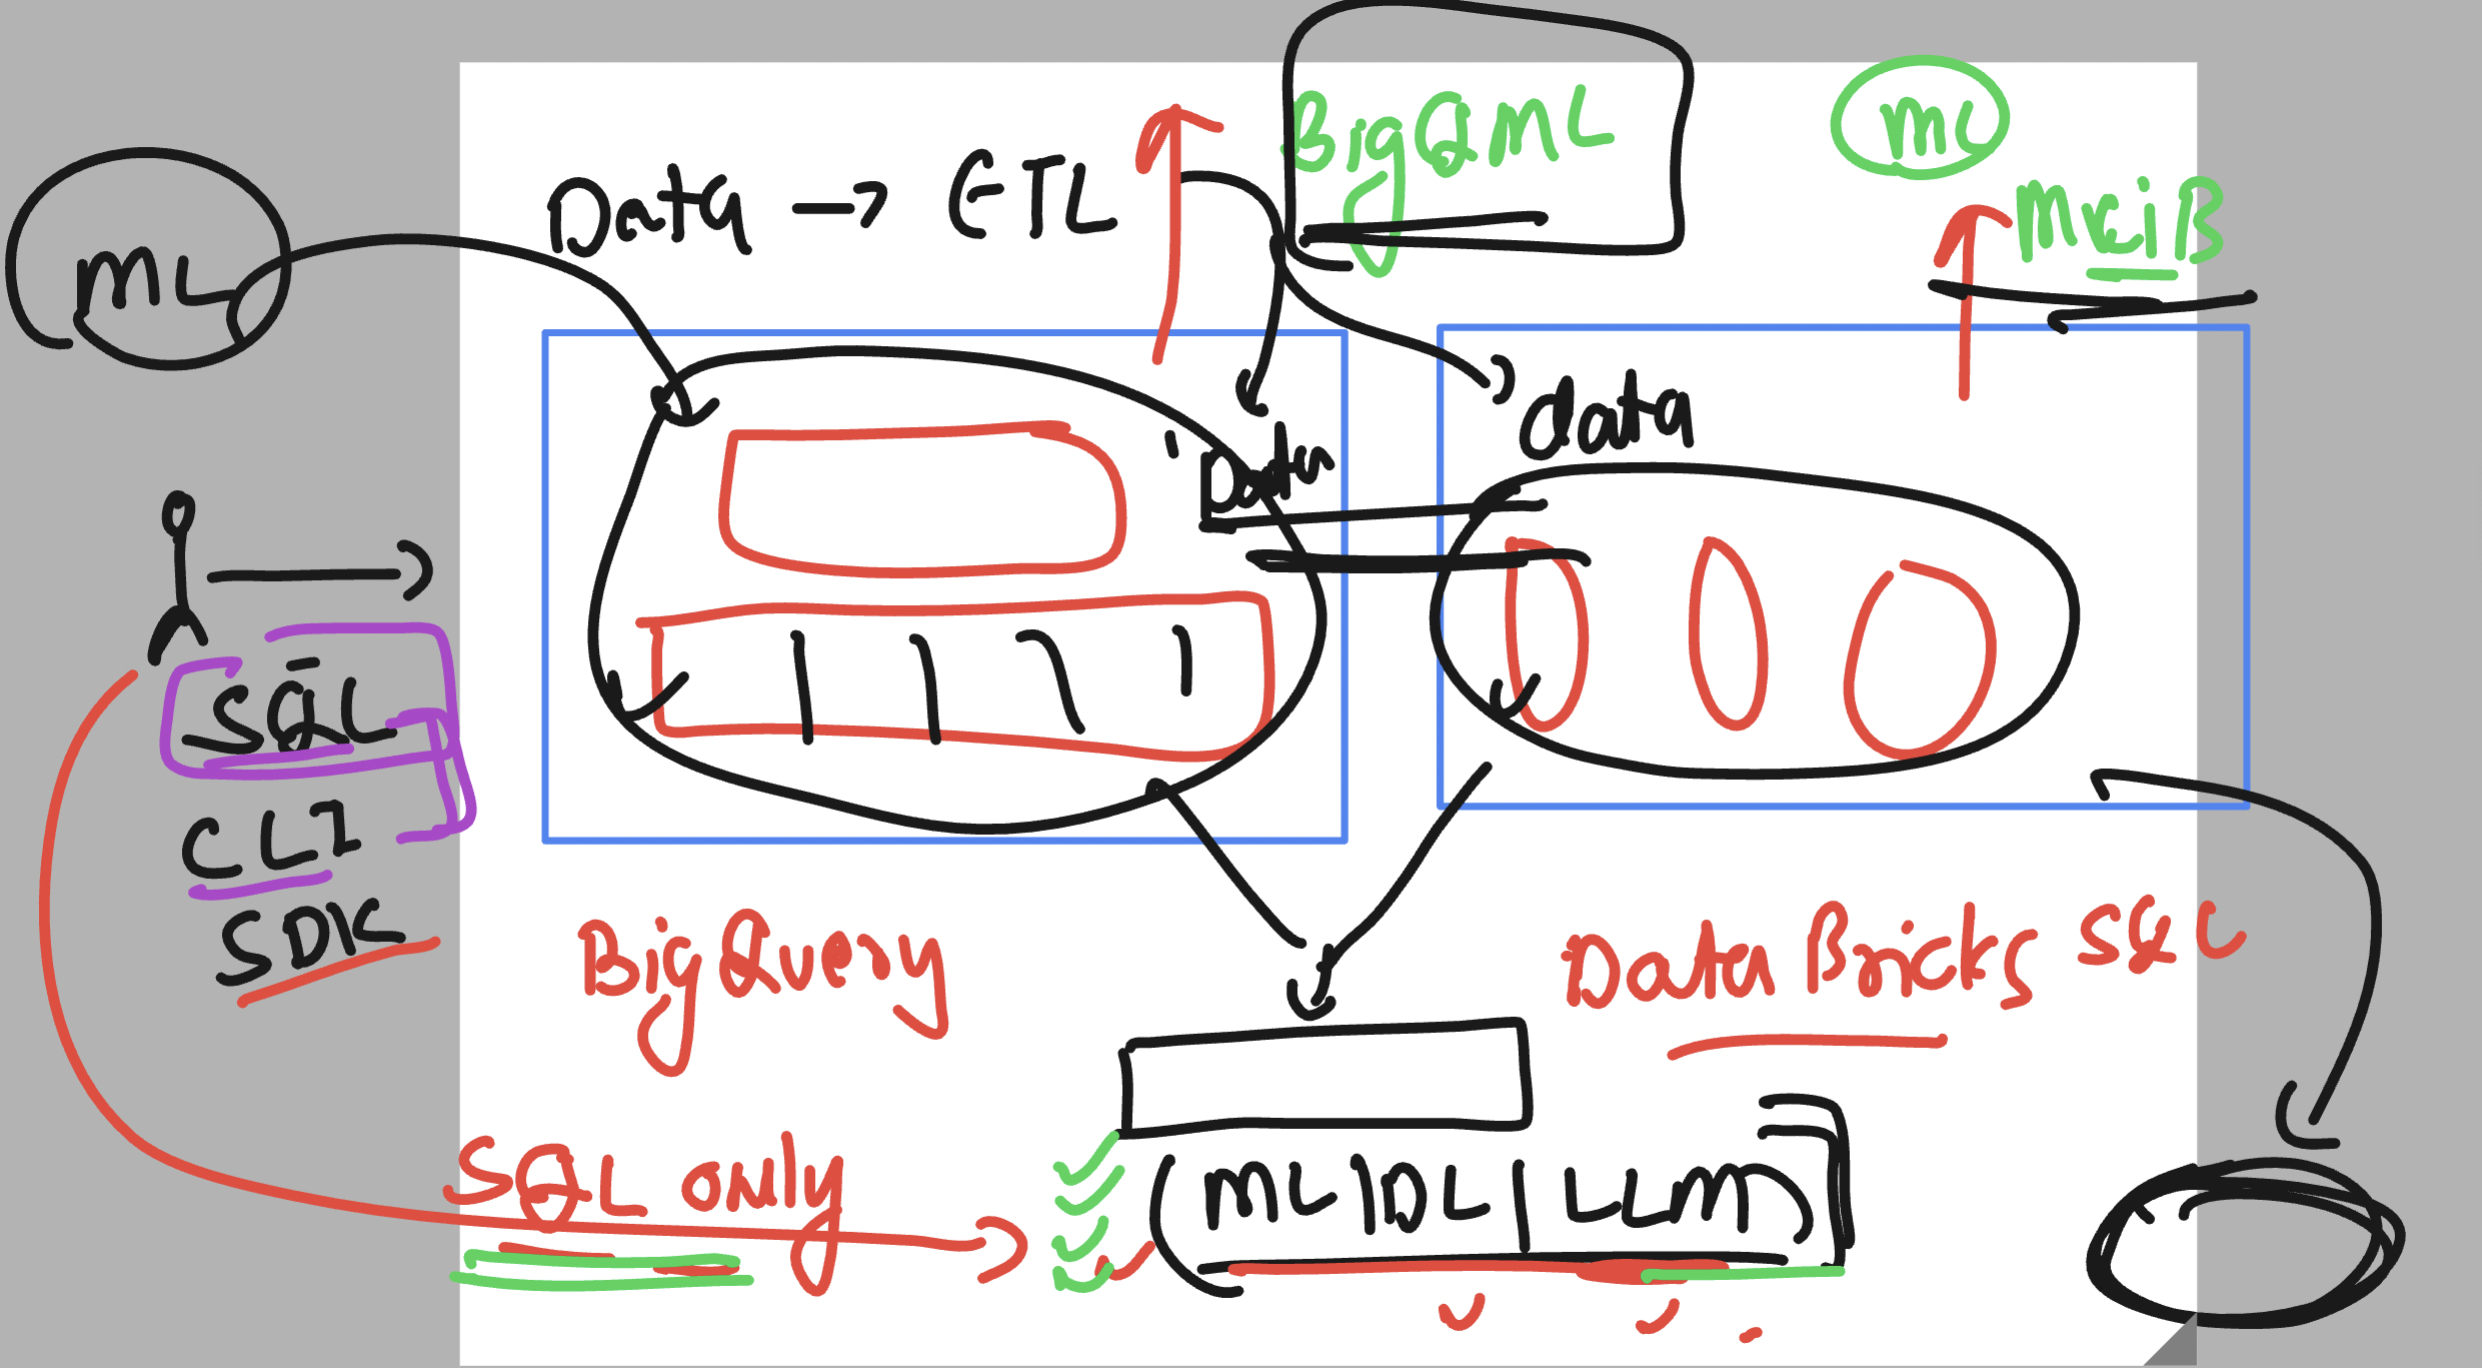 Data → ETL
BigQML
ML
ML
data
Data
SQL
CLI
SDK
BigQuery
Data Bricks SQL
SQL only
(ML | DL | LLM)